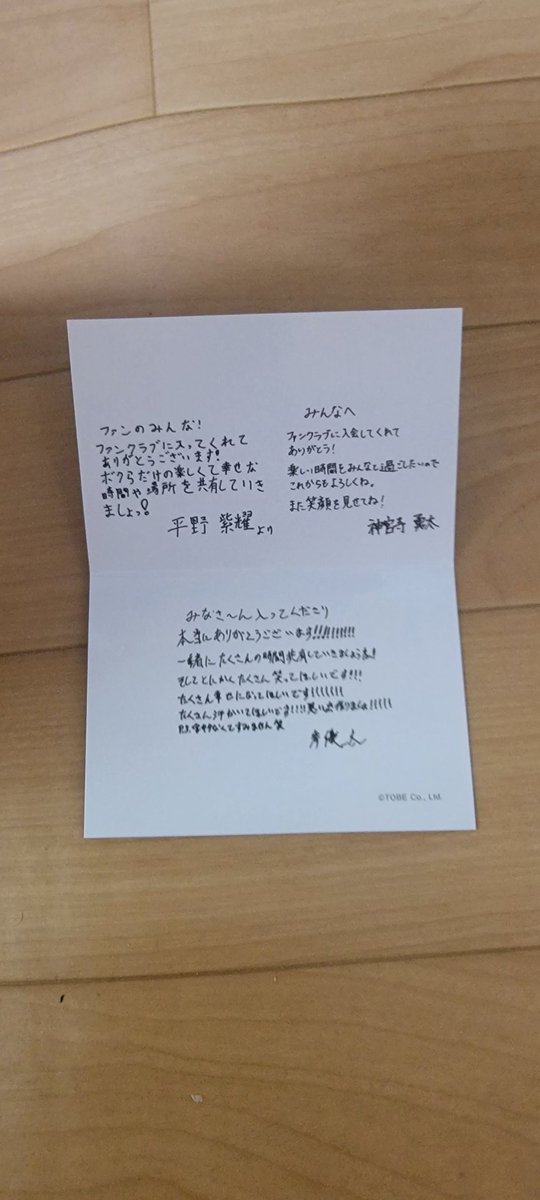 ファンのみんな!
ファンクラブに入ってくれて
ありがとうございます!
ボクらだけの楽しくて幸せな
時間や場所を共有していき
ましょっ!
平野 紫耀より
みんなへ
ファンクラブに入会してくれて
ありがとう!
楽しい時間をみんなと過ごしたいので
これからもよろしくね。
また笑顔を見せてね!
神宮寺 勇太
みなさ〜ん入ってくださり
本当にありがとうございます!!!!!!!!!!
一緒にたくさんの時間共有していきましょうね!
そしてとにかくたくさん笑ってほしいです!!!
たくさん幸せになってほしいです!!!!!!!
たくさん汗かいてほしいです!!!!思い出作りましょ!!!!!
P.S.字きたなくてすみません笑
岸優太
©TOBE Co., Ltd.